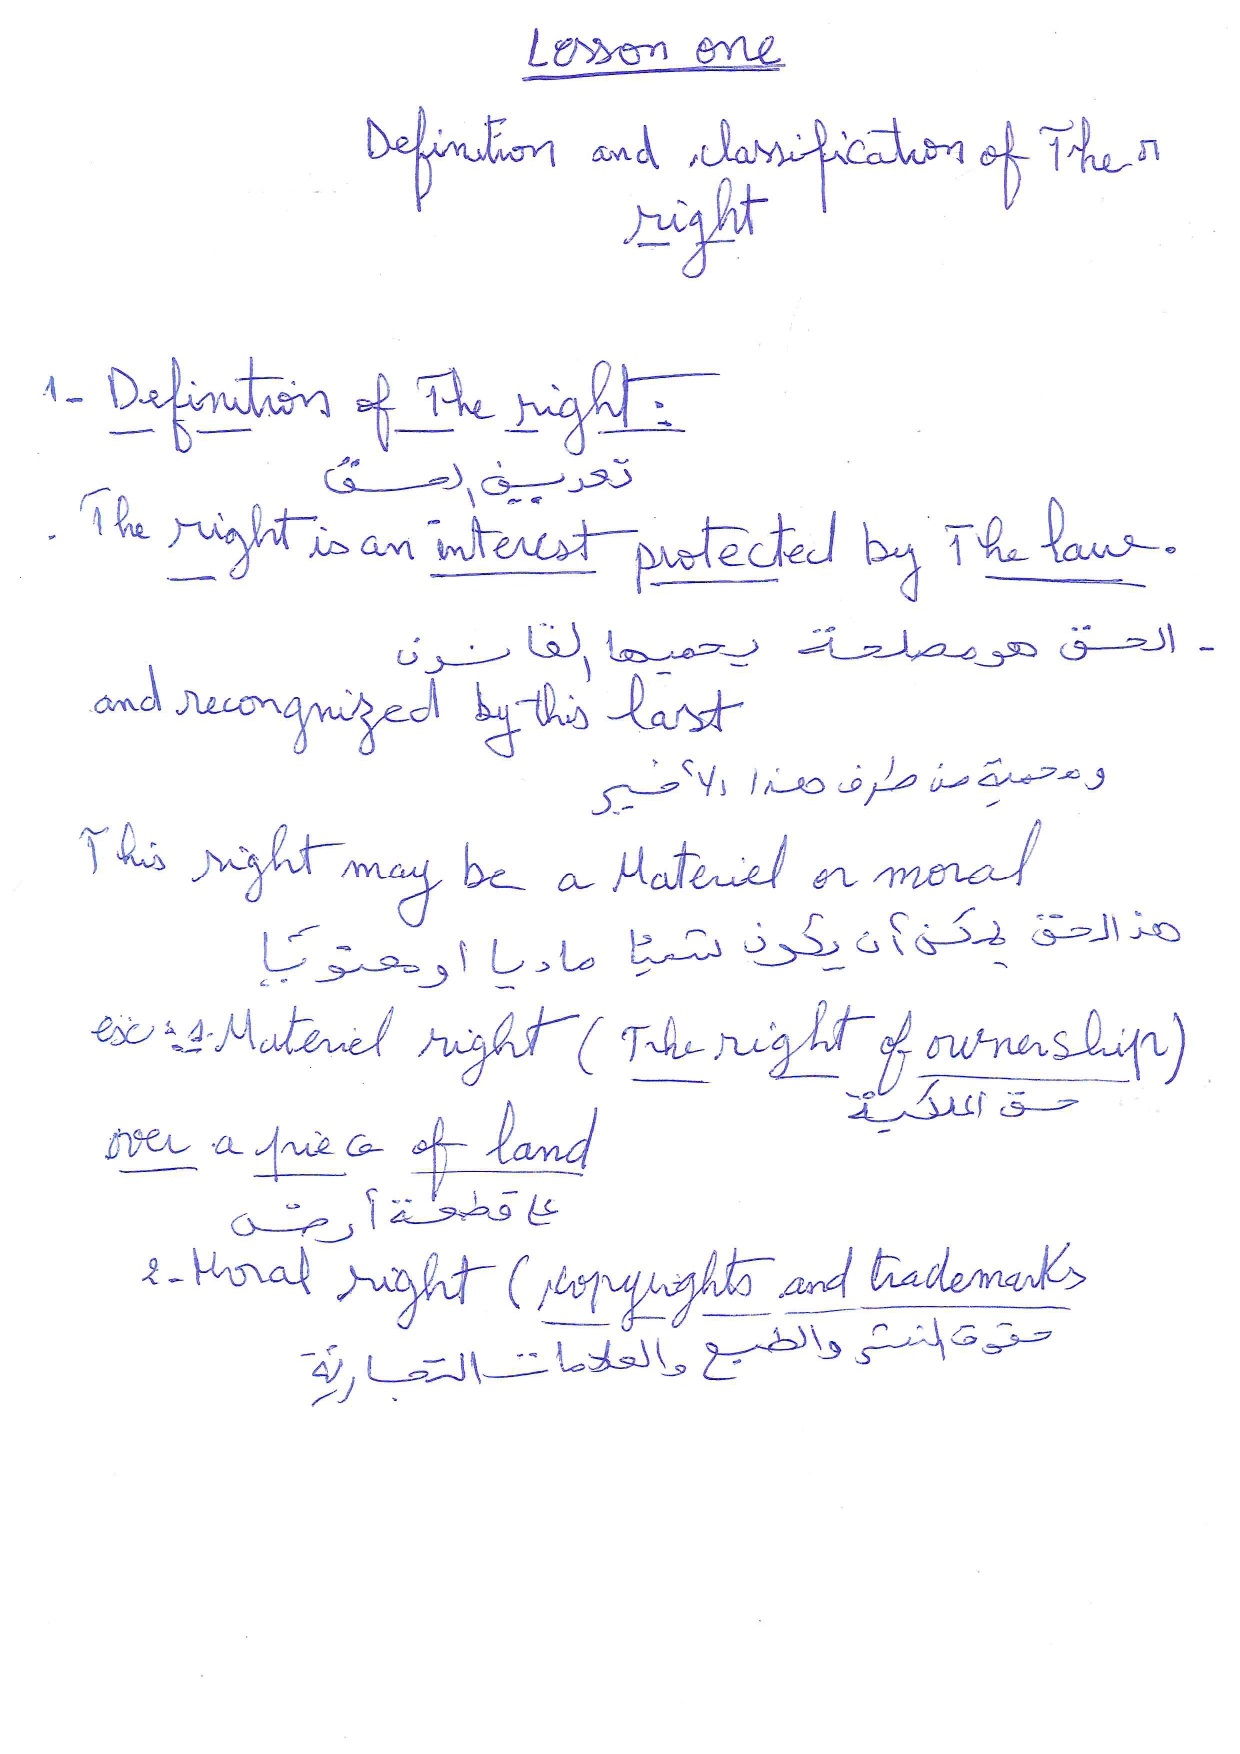 Lesson one
Definition and classification of The r
right
1- Definition of The right:
تعريف الحق
. The right is an interest protected by The law.
- الحق هو مصلحة يحميها القانون
and recongnized by this last
ومحمية من طرف هذا الأخير
This right may be a Materiel or moral
هذا الحق يمكن أن يكون شيئا ماديا او معنويًا
ex: 1-Materiel right (The right of ownership)
حق الملكية
over a piece of land
على قطعة أرض
2-Moral right (copyrights and trademarks
حقوق النشر والطبع والعلامات التجارية